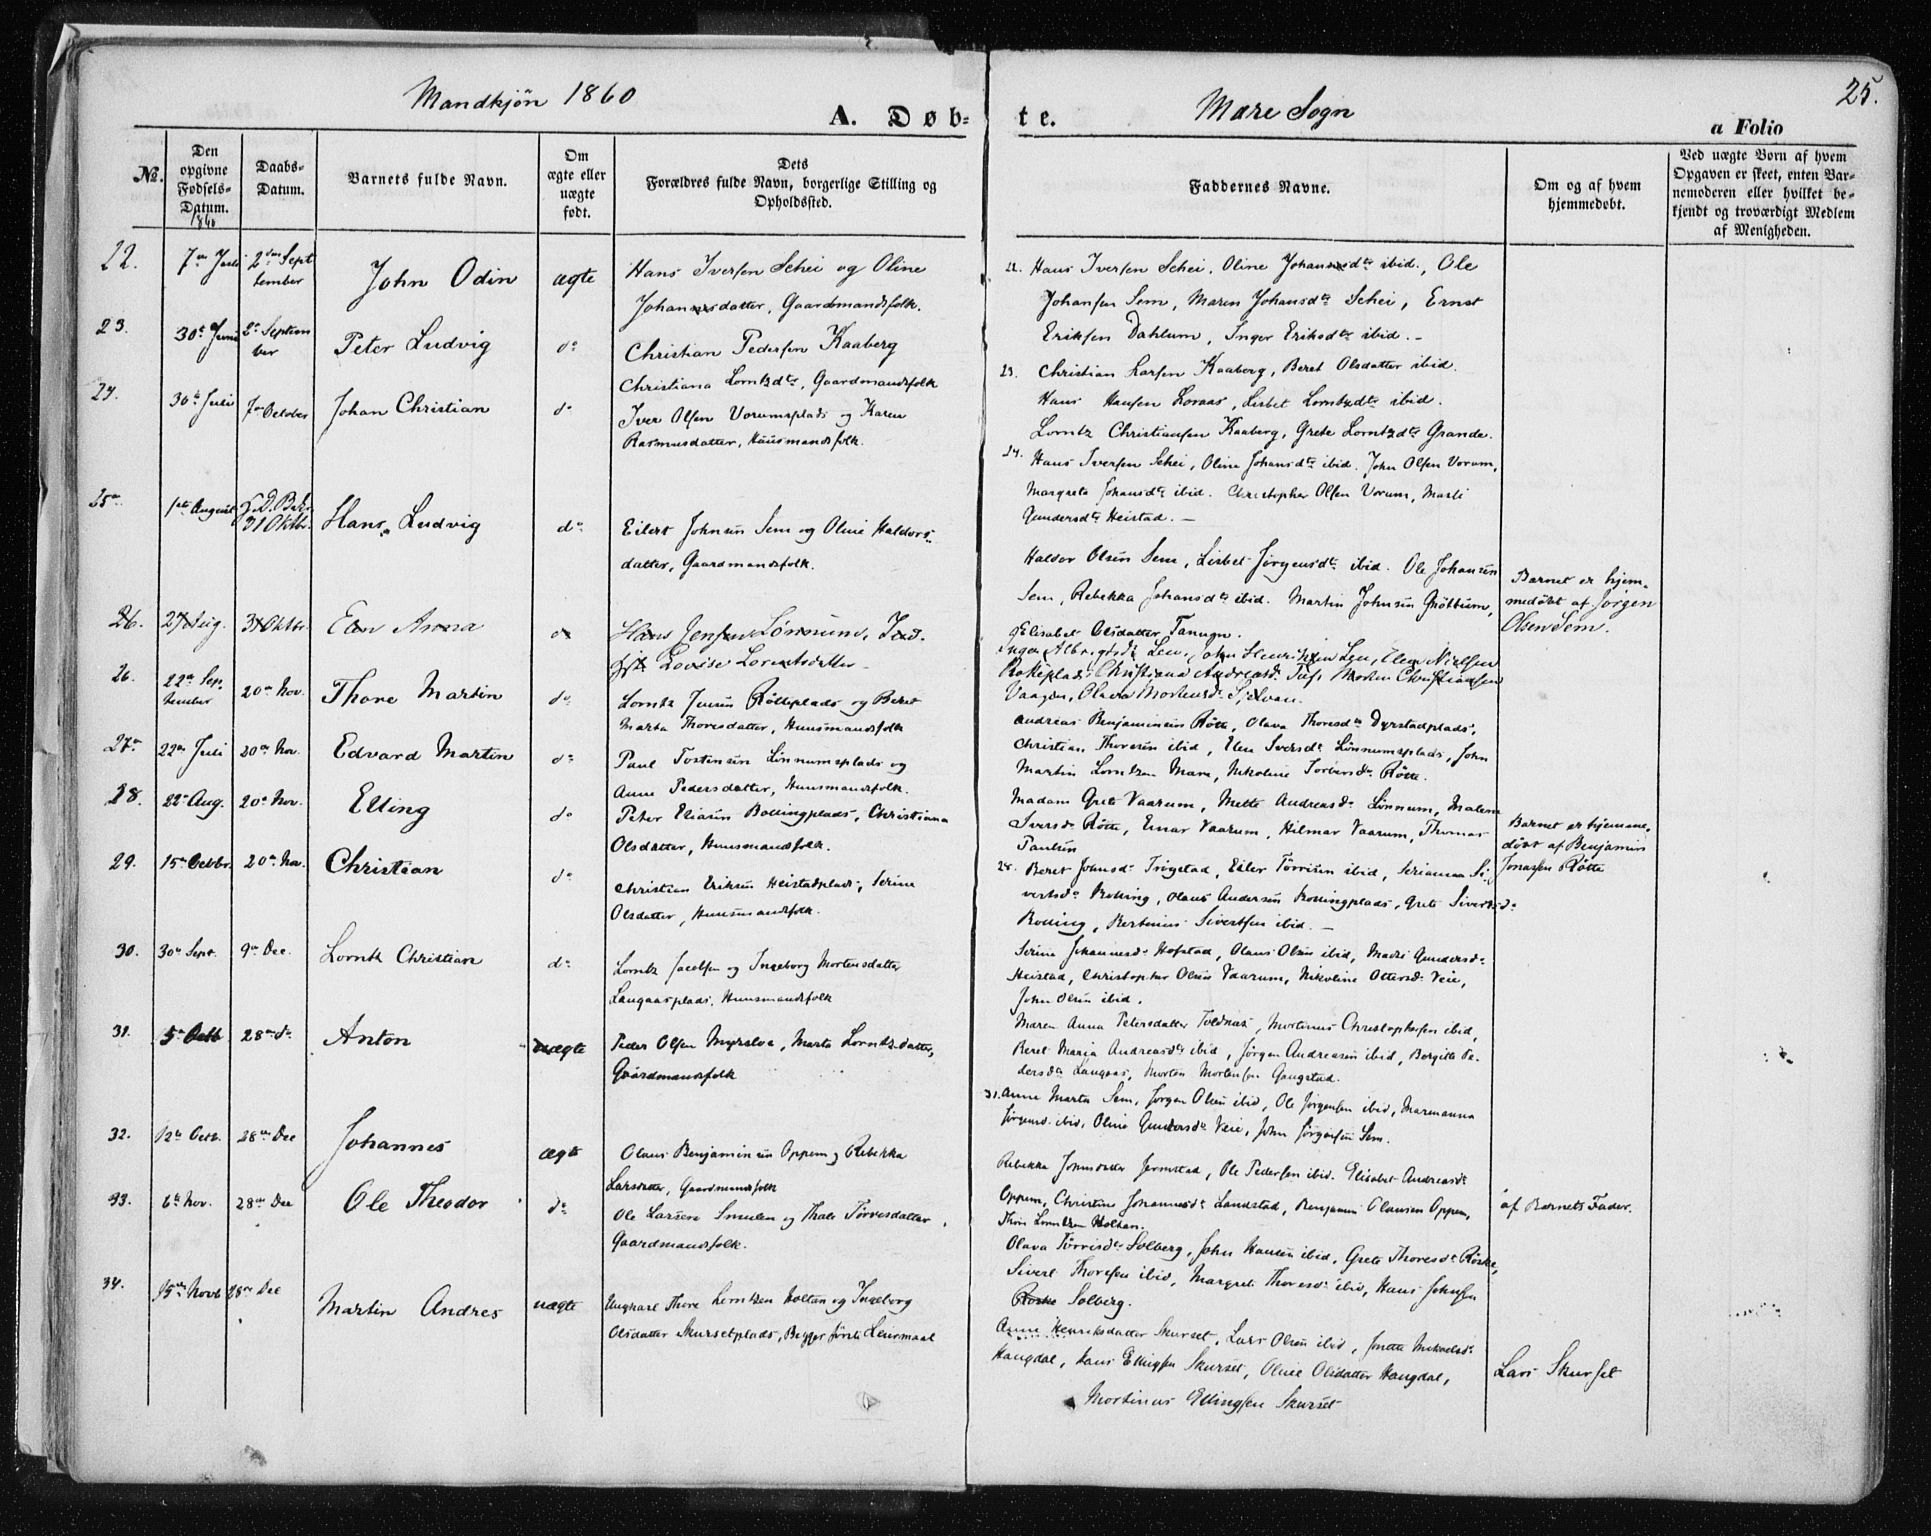 Mandkjön 1860
A. Døb-
te.
Mære Sogn
25.
a Folio
No.
Den opgivne Fødsels-Datum.
1860
Daabs-Datum.
Barnets fulde Navn.
Om ægte eller uægte født.
Dets
Forældres fulde Navn, borgerlige Stilling og
Opholdssted.
Faddernes Navne.
Om og af hvem
hjemmedøbt.
Ved uægte Born af hvem
Opgaven er skeet, enten Bar-
nemoderen eller hvilket be-
kjendt og troværdigt Medlem
af Menigheden.
22. 7de Juli 2den September John Odin ægte
Hans Iversen Schei og Oline
Johannsdatter, Gaardmandsfolk.
22. Hans Iversen Schei, Oline Johansdtr ibid., Ole
Johansen Sem, Maren Johansdtr Schei, Ernst
Eriksen Dahlum, Inger Eriksdtr ibid. -
23. 30te Juni 2den September Peter Ludvig do
Christian Pedersen Kaaberg
Christiana Lorntzdtr, Gaardmandsfolk
23. Christian Larsen Kaaberg, Beret Olsdatter ibid.
Hans Hansen Loraas, Lisbet Lorntzdtr ibid.
Lorntz Christiansen Kaaberg, Grete Lorntzdtr Grande.
24. 30te Juli 7de October Johan Christian do
Iver Olsen Vorumsplads og Karen
Rasmusdatter, Huusmandsfolk.
24. Hans Iversen Schei, Oline Johansdtr ibid. John Olsen Vorum,
Margrete Johansdtr ibid. Christopher Olsen Vorum, Marli
Gundersdtr Heistad. -
25de 1ste August 31 Oktbr. Hans Ludvig do
Eilert Johnsen Sem og Oline Haldors-
datter, Gaardmandsfolk.
Haldor Olsen Sem, Lisbet Jørgensdtr ibid. Ole Johansen
Sem, Rebekka Johansdtr ibid. Martin Johnsen Grøttum,
Elisabet Olsdatter Tanugn.
Barnet er hjem-
medöbt af Jørgen
Olsen Sem.
26. 27 Aug. 31 Oktbr. Anna do
Hans Jensen Lönnum, Ind.
Lovise Lorentsdatter
Inger Albrigtsdtr Len, John Henriksen Len, Elen Nielsen
Christiana Andreasdr Tuss Morten Christiansen
Vaagen, Olava Mortensdr Sjelvan.
26. 22de September 20de Nov. Thore Martin do
Lorntz Jensen Rötteplads og Beret
Marta Thoresdatter, Huusmandsfolk
Andreas Benjaminsen Rötte, Olava Thoresdtr Dyrstadplads,
Christian Thoresen ibid, Elen Iversdr Lönnumsplads, John
Martin Lorntzen Mære, Nikoline Torbersdr Rötte.
27de 22de Juli 20de Nov. Edvard Martin do
Paul Tostensen Lönnumsplads og
Anne Pedersdatter, Huusmandsfolk.
Madam Grete Vaarum, Mette Andreasdr Lönnum, Malene
Iversdr Rötte, Einar Vaarum, Hilmar Vaarum, Thomas
Paulsen
Barnet er hjemme-
döbt af Benjamin
Jonassen Rötte
28. 22de Aug. 20de Nov. Elling do
Peter Eliasen Bollingplads, Christiana
Olsdatter, Huusmandsfolk.
28. Beret Johnsdr Trøgstad, Eiler Törrisen ibid, Serianna Si-
vertsdr Bolling, Olaus Andersen Bollingplads, Grete Sivertsdr
Bolling, Bertinus Sivertsen ibid. -
29. 15de Octbr. 20de Nov. Christian do
Christian Eriksen Heistadplads, Serine
Olsdatter, Huusmandsfolk.
Serine Johannesdr Hofstad, Olaus Olsen ibid, Marli Gundersdr
Heistad, Christopher Olsen Vaarum, Nikoline Ottersdr Veie,
John Olsen ibid.
30. 30te Sept. 9de Dec. Lorntz Christian do
Lorntz Jacobsen og Ingeborg Mortensdatter
Langaasplads, Huusmandsfolk
Maren Anna Petersdatter Toldnæs, Mortinus Christophersen ibid,
Beret Maria Andreasdtr ibid, Jørgen Andreasen ibid, Bergitte Pe-
dersdtr Langaas, Morten Mortensen Gangstad.
31. 5te Octb 28de do Anton uægte
Peder Olsen Myrslve, Marta Lorntzdatter,
Gaardmandsfolk
31. Anne Marta Sem, Jørgen Olsen ibid, Ole Jørgensen ibid, Marenanna
Jørgensd. ibid, Oline Gundersdr Veie, John Jørgensen Sem.
32. 12te Octb. 28de Dec Johannes ægte
Olaus Benjaminsen Oppem og Rebekka
Larsdatter, Gaardmandsfolk
Rebekka Johnsdatter Jermstad, Ole Pedersen ibid. Elisabet Andreasdr
Oppem, Christine Johannesdr Landstad, Benjamin Olausen Oppem,
Thore Lorntzen Holtan.
af Barnets Fader.
33. 6te Nov. 28de Dec Ole Theodor do
Ole Larsen Smulen og Thale Törresdatter,
Gaardmandsfolk.
Olava Törrisdr Solberg, John Hansen ibid, Grete Thoresdr Röske,
Sivert Thoresen ibid, Margrete Thoresdr ibid, Hans Johnsen
Röske Solberg.
34. 15de Novb 28de Dec Martin Andres uægte
Ungkarl Thore Lorntzen Holtan og Ingeborg
Olsdatter Skursetplads, Begges første Leiermaal
Anne Henriksdatter Skurset, Lars Olsen ibid, Jonetta Mikaelsdr
Haugdal, Hans Ellingsen Skurset, Oline Olsdatter Haugdal,
Mortinus Ellingsen Skurset
Lars Skurset